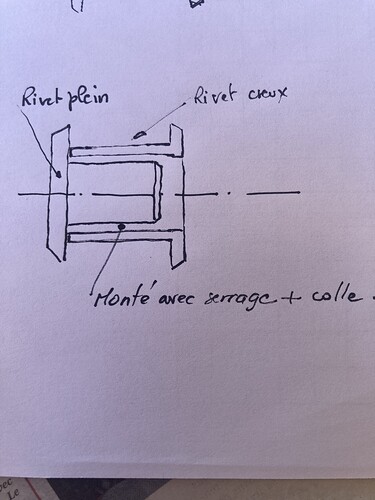 Rivet plein
Rivet creux
Monté avec serrage + colle.
Le